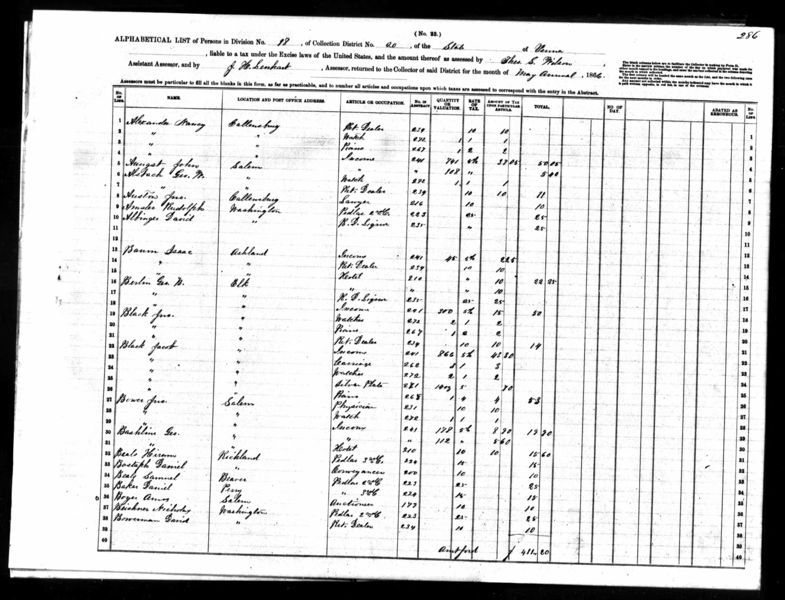 286
(No. 23.)
ALPHABETICAL LIST of Persons in Division No. 18, of Collection District No. 20, of the State of Penna
, liable to a tax under the Excise laws of the United States, and the amount thereof as assessed by Thos E. Wilson
Assistant Assessor, and by J H Lenhart, Assessor, returned to the Collector of said District for the month of May Annual, 1866.
Assessors must be particular to fill all the blanks in this form, as far as practicable, and to number all articles and occupations upon which taxes are assessed to correspond with the entry in the Abstract.
No. of List. NAME. LOCATION AND POST OFFICE ADDRESS. ARTICLE OR OCCUPATION. No. in ABSTRACT QUANTITY OR VALUATION. RATE OF TAX. AMOUNT OF TAX UPON PARTICULAR ARTICLE. TOTAL. NO. OF DAY. ABATED AS ERRONEOUS. No. of List.
1 Alexander Nancy Callensburg Ret. Dealer 239 10 10
2 " " Watch 272 1 1 1
3 " " Piano 267 1 2 2
4 " " Income 241 741 5% 37 05 50 05
5 Amngst John Salem " " 108 " 5 40
6 Alsbach Geo. W. " Watch 272 1 1 1
7 " " Ret. Dealer 239 10 10 11
8 Austin Jno. Callensburg Lawyer 216 10 10
9 Amsler Rudolph Washington Pedlar 2nd C. 223 25 25
10 Albinger David " R. D. Liquor 235 " 25
11
12
13 Baum Isaac Ashland Income 241 45 5% 2 25
14 " " Ret. Dealer 239 10 10
15 " " Hotel 210 " 10 22 25
16 Berlin Geo. W. Elk " " " 10
17 " " R. D. Liquor 235 25 25
18 " " Income 241 300 5% 15 50
19 Black Jno. " Watches 272 2 1 2
20 " " Piano 267 1 2 2
21 " " Ret. Dealer 239 10 10 14
22 Black Jacob " Income 241 866 5% 43 30
23 " " Carriage 252 3 1 3
24 " " Watches 272 2 1 2
25 " " Silver Plate 281 5 70
26 " " Piano 268 1 4 4 53
27 Bower Jno. Salem Physician 231 10 10
28 " " Watch 272 1 1 1
29 " " Income 241 178 5% 8 90 19 90
30 Bashline Geo. " " " 112 " 5 60
31 " " Hotel 210 10 10 15 60
32 Beals Hiram Richland Pedlar 3rd C. 224 15 15
33 Bostaph Daniel " Conveyancer 200 10 10
34 Beals Samuel Beaver Pedlar 2nd C. 223 25 25
35 Baker Daniel Perry " 3rd C. 224 15 15
36 Boyer Amos Salem Auctioneer 177 10 10
37 Beichner Nicholas Washington Pedlar 2nd C. 223 25 25
38 Bowerman David " Ret. Dealer 234 10 10
39
40 Amt ford 411 20